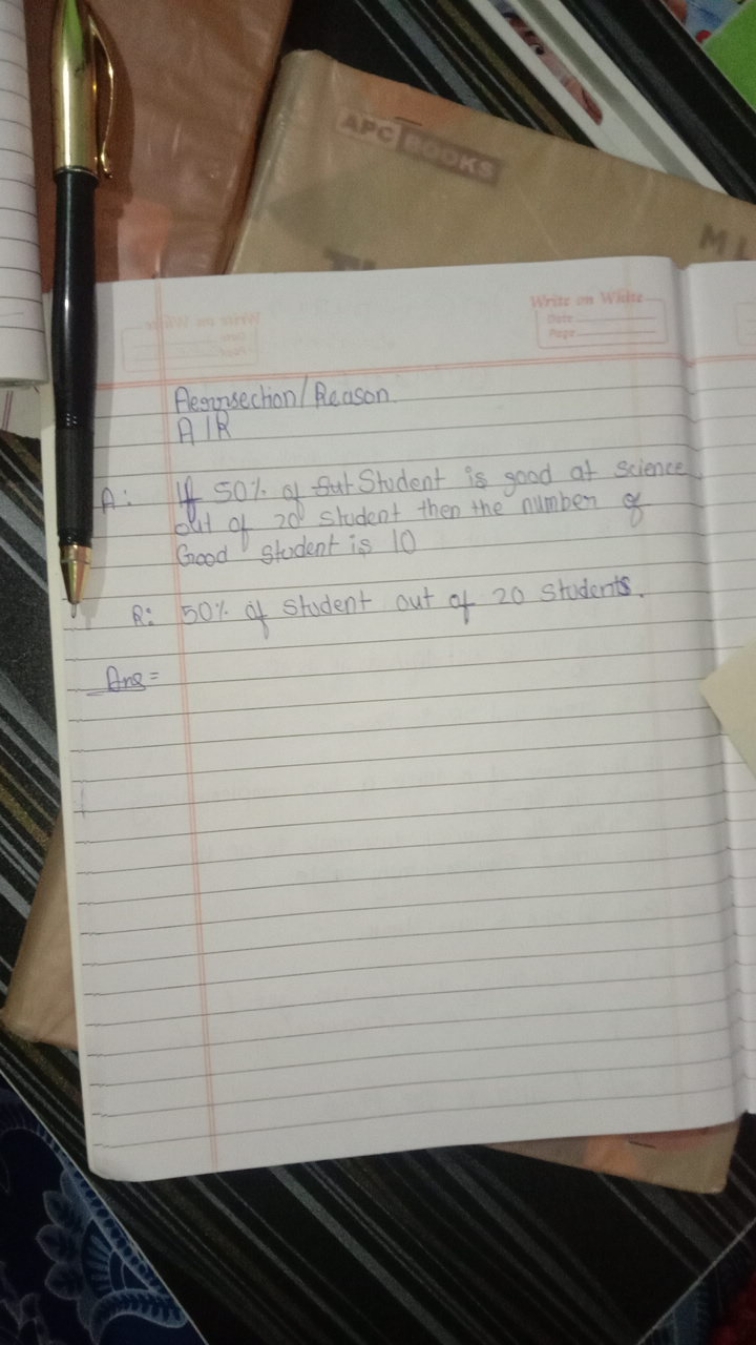 APC BOOKS
ML
Write on White
Date
Page
/ Reason
A/R
A: If 50% of Student is good at science
out of 20 student then the number of
Good student is 10
R: 50% of student out of 20 students.
Ans =